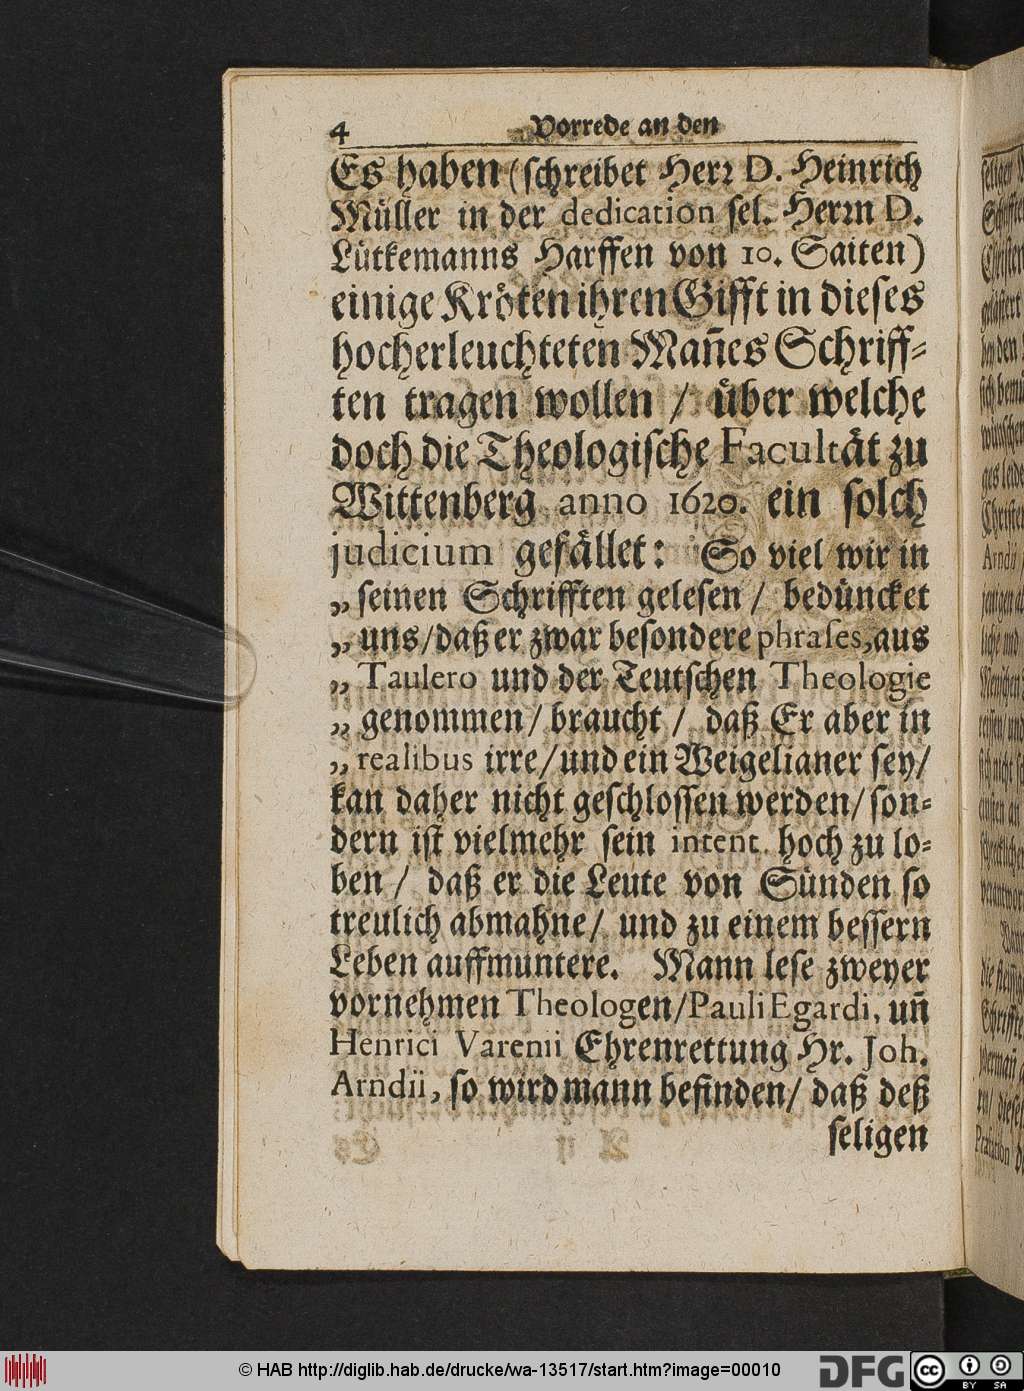 4 Vorrede an den
Es haben (schreibet Herꝛ D. Heinrich
Müller in der dedication sel. Herꝛn D.
Lütkemanns Harffen von 10. Saiten)
einige Kröten ihren Gifft in dieses
hocherleuchteten Mañes Schriff-
ten tragen wollen / über welche
doch die Theologische Facultät zu
Wittenberg anno 1620. ein solch
judicium gefället: So viel wir in
„ seinen Schrifften gelesen / bedüncket
„ uns/daß er zwar besondere phrases, aus
„ Taulero und der Teutschen Theologie
„ genommen/ braucht / daß Er aber in
„ realibus irre/und ein Weigelianer sey/
kan daher nicht geschlossen werden/ son-
dern ist vielmehr sein intent hoch zu lo-
ben / daß er die Leute von Sünden so
treulich abmahne/ und zu einem bessern
Leben auffmuntere. Mann lese zweyer
vornehmen Theologen/Pauli Egardi, uñ
Henrici Varenii Ehrenrettung Hr. Joh.
Arndii, so wird mann befinden/ daß deß
seligen
© HAB http://diglib.hab.de/drucke/wa-13517/start.htm?image=00010
DFG
cc BY SA